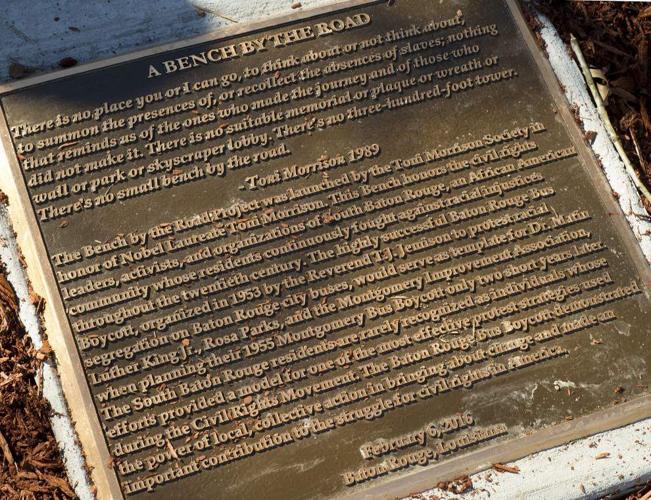 A BENCH BY THE ROAD
There is no place you or I can go, to think about or not think about,
to summon the presences of, or recollect the absences of slaves; nothing
that reminds us of the ones who made the journey and of those who
did not make it. There is no suitable memorial or plaque or wreath or
wall or park or skyscraper lobby. There's no three-hundred-foot tower.
There's no small bench by the road.
-Toni Morrison 1989
The Bench by the Road Project was launched by the Toni Morrison Society in
honor of Nobel Laureate Toni Morrison. This Bench honors the civil rights
leaders, activists, and organizations of South Baton Rouge, an African American
community whose residents continuously fought against racial injustices
throughout the twentieth century. The highly successful Baton Rouge Bus
Boycott, organized in 1953 by the Reverend T.J. Jemison to protest racial
segregation on Baton Rouge city buses, would serve as template for Dr. Martin
Luther King Jr., Rosa Parks, and the Montgomery Improvement Association,
when planning their 1955 Montgomery Bus Boycott only two short years later.
The South Baton Rouge residents are rarely recognized as individuals whose
efforts provided a model for one of the most effective protest strategies used
during the Civil Rights Movement. The Baton Rouge Bus Boycott demonstrated
the power of local, collective action in bringing about change and made an
important contribution to the struggle for civil rights in America.
February 6, 2016
Baton Rouge, Louisiana